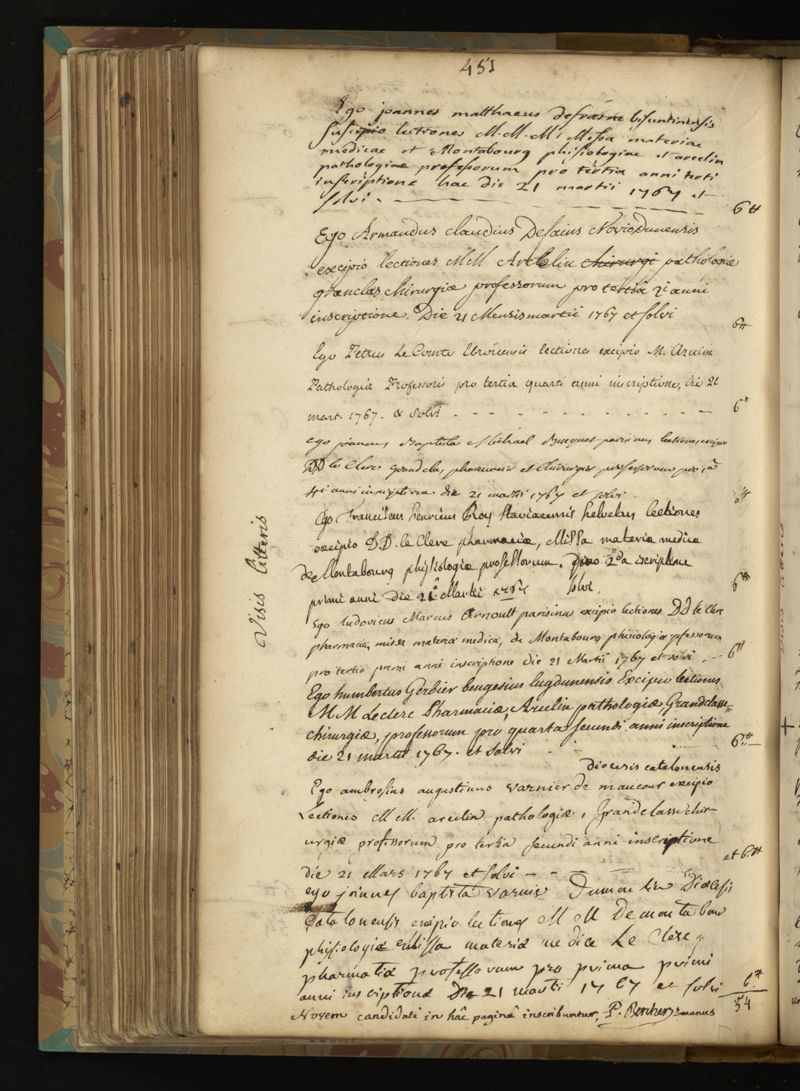 451
Ego joannes matthaeus defrasne bisuntinensis
suscipio lectiones M.M. Missa materiae
medicae et Montabourg physiologiae et arcelin
pathologiae professorum pro tertia anni
inscriptione hac die 21 martii 1767 et
solvi. 6 tt
Ego Armandus claudius Desains Noviodunensis
excipio lectiones MM Arcelin chirurgi pathologiæ
grandclas chirurgiæ professorum pro tertia 2i anni
inscriptione. Die 21 Mensis martii 1767 et solvi 6tt
Ego Petrus Le Comte Ebroicensis lectiones excipio M. Arcelin
Pathologiæ Professoris pro tertia quarti anni inscriptione, die 21
mart. 1767. & solvi - - - - - - - - 6tt
Ego joannes Baptista Michael Bucquet parisinus lectiones excipio
DD le Clerc grandclas, pharmaciæ et Chirurgiæ professorum pro
anni inscriptione die 21 martii 1767 et solvi. 6tt
Visis litteris
Ego Franciscus henricus Roy Staviacensis helvetus lectiones
excipio D.D. le Clerc pharmaciæ, Missa materiæ medicæ
de Montabourg physiologiæ professorum. pro 2da iscriptione
primi anni die 21a Martii 1767 solvi. 6tt
Ego ludovicus Marcus Arnoult parisinus excipio lectiones DD le Clerc
pharmaciæ, missa materiæ medicæ, de Montabourg phisiologiæ professorum
pro tertia primi anni inscriptione die 21 Martii 1767 et solvi - - 6tt
Ego humbertus Gerbier beugesius lugdunensis Excipio lectiones
M M Leclerc Pharmaciæ, Arcelin pathologiæ, Grandclasse
chirurgiæ, professorum pro quarta secundi anni inscriptione
die 21 martii 1767. et solvi - - 6tt
diocesis catalonensis
Ego ambrosius augustinus varnier de maucour excipio
Lectiones MM. arcelin pathologiæ, Grandclasse chir-
urgiæ professorum pro tertia secundi anni inscriptione
die 21 Mars 1767 et solvi - - et 6.tt
ego joannes baptista varnie Dumon Diœcesis
Catalonensis excipio lectiones M M De montabour
phisiologiæ Missa materiæ medicæ Le Clerc
pharmatiæ professorum pro prima primi
anni inscriptione Die 21 marti 1767 et solvi 6.tt
54
Novem candidati in hâc paginâ inscribuntur, P. Bercher Decanus